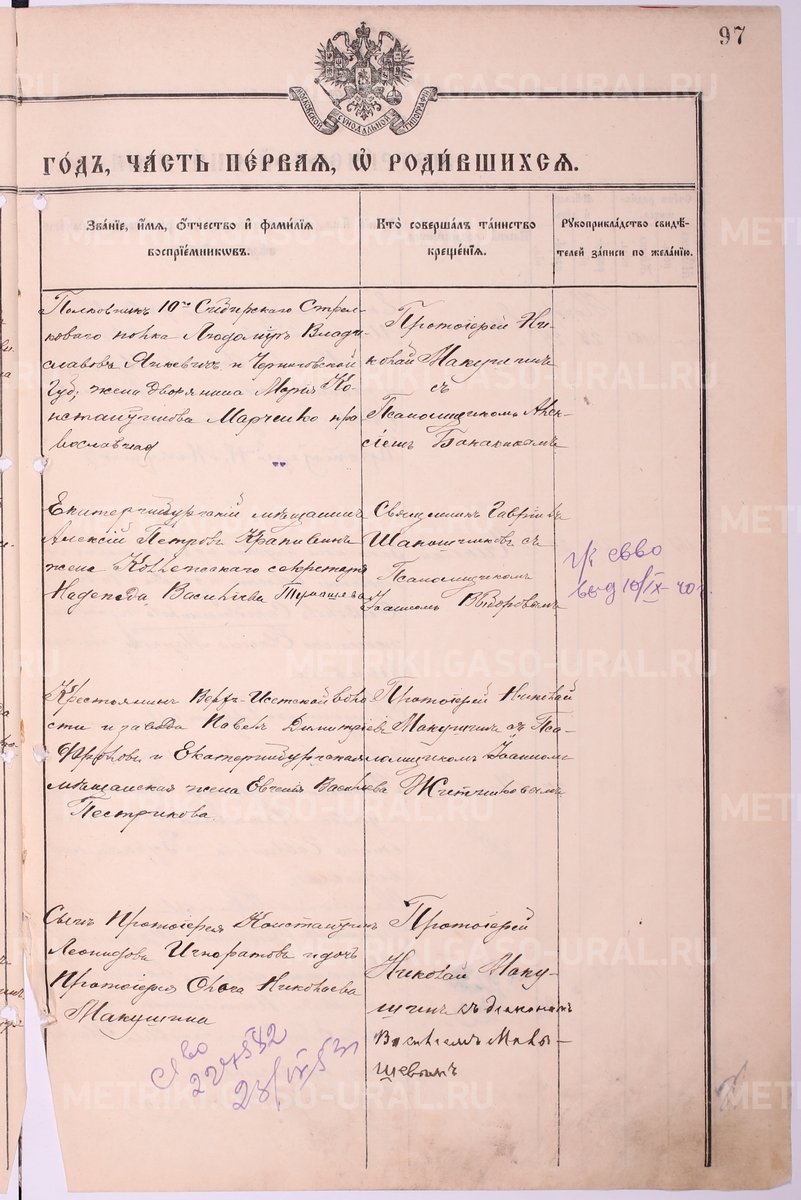 97
МОСКОВСКОЙ СѴНОДАЛЬНОЙ ТИПОГРАФІИ
ГО́ДЪ, ЧА́СТЬ ПЕ́РВАЯ, Ѡ РОДИ́ВШИХСЯ.
Зва́нїе, и́мя, о́тчество и фами́лїя
воспрїе́мниковъ.
Кто̀ соверша́лъ та́инство
креще́нїя.
Рꙋкоприкла́дство свидѣ́-
телей за́писи по жела́нїю.
Полковникъ 10го Сибирскаго Стрел-
коваго полка Людомиръ Влади-
славовъ Янкевичъ и Черниговской
Губ; жена дворянина Марія Ко-
нстантинова Марченко пра-
вославная
Протоіерей Ни-
колай Макушинъ
съ
Псаломщикомъ Алек-
сіемъ
Екатеринбургскій мѣщанинъ
Алексій Петровъ Крапивинъ
жена Коллежскаго секретаря
Надежда Васильева
Священникъ Гавріилъ
съ
Псаломщикомъ
Іоанномъ
св-во
10/IX-40г.
Крестьянинъ Верхъ-Исетской воло
сти и завода Павелъ Димитріевъ
Фроловъ и Екатеринбургская
мѣщанская жена Евгенія Васильева
Пестрикова.
Протоіерей Николай
Макушинъ съ Пса-
ломщикомъ Іоанномъ
Житниковымъ
Сынъ Протоіерея Константинъ
Леонидовъ Игноратовъ и дочь
Протоіерея Ольга Николаева
Макушина
Протоіерей
Николай Маку-
шинъ съ діакономъ
Василіемъ
св-во